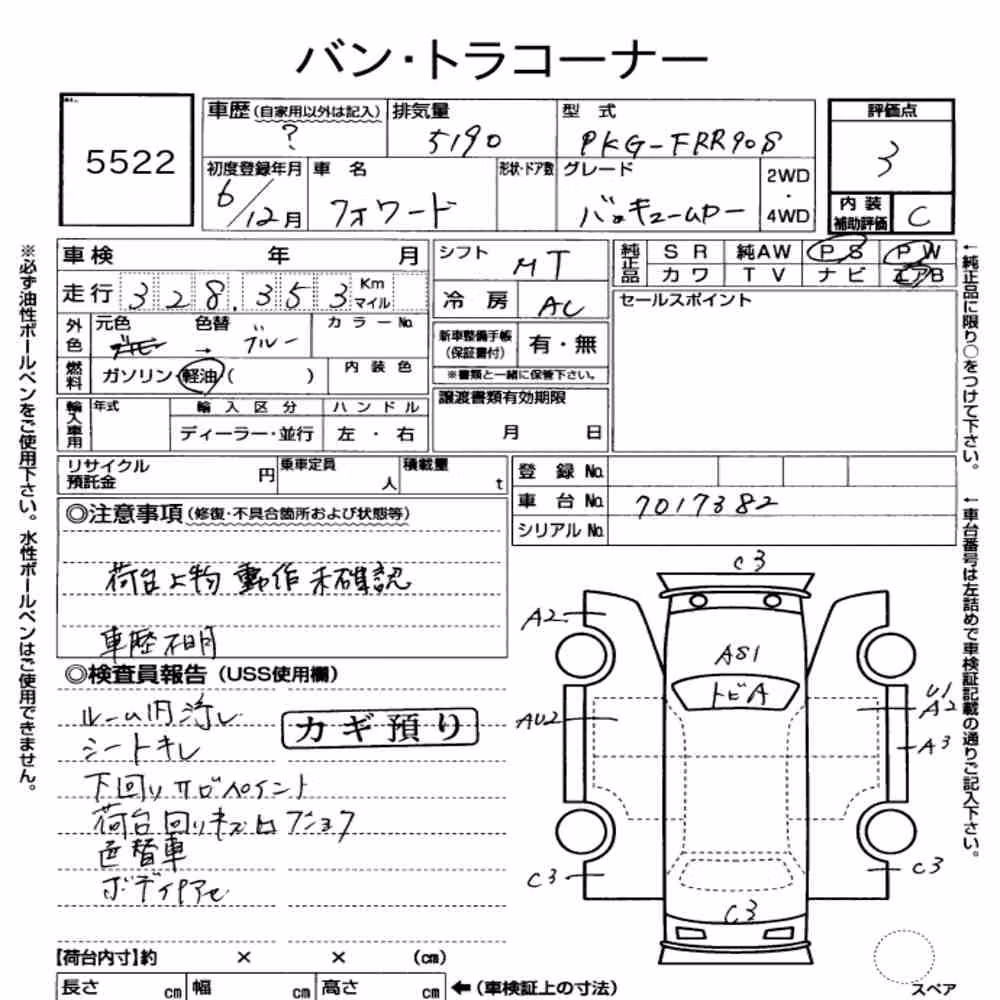 バン・トラコーナー
5522
車歴(自家用以外は記入) ?
排気量 5190
型式 PKG-FRR90S
評価点 3
初度登録年月 6/12月
車名 フォワード
形状・ドア数
グレード バキュームロー
2WD・4WD
内装補助評価 C
車検 年 月
シフト MT
純正品 SR 純AW PS PW
カワ TV ナビ エアB
走行 328,353 Km マイル
冷房 AC
セールスポイント
外色 元色 色替 → ブルー
カラーNo.
新車整備手帳(保証書付) 有・無
※書類と一緒に保管下さい。
燃料 ガソリン・軽油( )
内装色
譲渡書類有効期限 月 日
輸入車用 年式 輸入区分 ハンドル
ディーラー・並行 左・右
リサイクル預託金 円
乗車定員 人
積載量 t
登録No.
車台No. 7017382
シリアルNo.
◎注意事項(修復・不具合箇所および状態等)
荷台上物 動作未確認
車歴不明
◎検査員報告(USS使用欄)
ルーム内汚レ
カギ預り
シートキレ
下回りサビペイント
荷台回りキズ凹
色替車
ボディ
【荷台内寸】約 × × (cm)
長さ cm 幅 cm 高さ cm ←(車検証上の寸法)
C3
A2
AS1
トビA
AU2
U1
A2
A3
C3
C3
C3
スペア
※必ず油性ボールペンをご使用下さい。水性ボールペンはご使用できません。
←純正品に限り○をつけて下さい。
←車台番号は左詰めで車検証記載の通りご記入下さい。